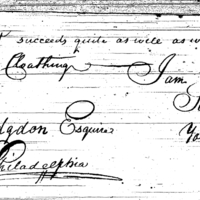 succeeds quite as well as w
Cloathing I am
gdon Esquire Yo
Philadelphia